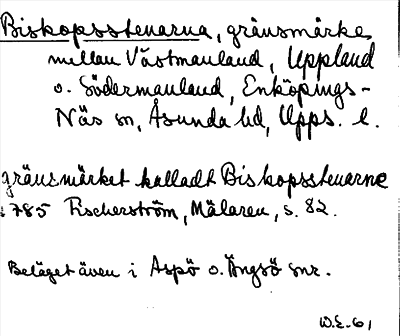 Biskopsstenarna, gränsmärke
mellan Västmanland, Uppland
o. Södermanland, Enköpings-
Näs sn, Åsunda hd, Upps. l.
gränsmärket kalladt Biskopsstenarne
1785 Fischerström, Mälaren, s. 82.
Beläget även i Aspö o. Ängsö snr.
W.E. 61